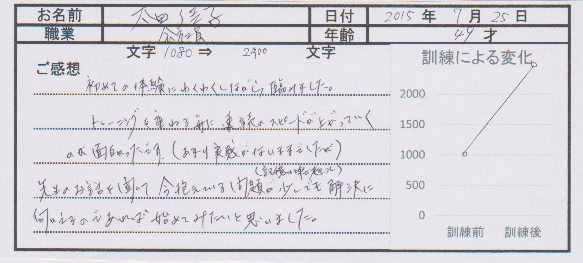 お名前 日付 2015 年 7 月 25 日
職業 会社員 年齢 49 才
文字 1080 ⇒ 2400 文字
ご感想
初めての体験にわくわくしながら臨みました。
トレーニングを重ねる毎に スピードが上がっていく
のが面白かったです。(あまり実感がないままでしたが)
先生のお話を聞いて 今抱えている問題が少しでも解決に
向かえるのであれば始めてみたいと思いました。
訓練による変化
2000
1500
1000
500
0
訓練前 訓練後